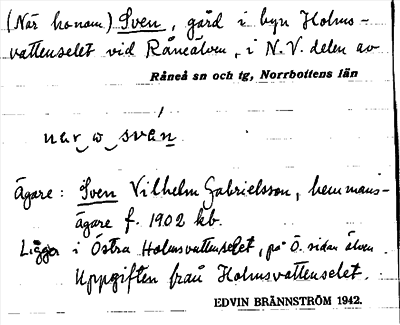 (När honom) Sven, gård i byn Holms-
vattenselet vid Råneälven, i N.V. delen av
Råneå sn och tg, Norrbottens län
nar w svén
Ägare: Sven Vilhelm Gabrielsson, hemmans-
ägare f. 1902 kb.
Ligger i Östra Holmsvattenselet, på ö. sidan älven.
Uppgiften från Holmsvattenselet.
EDVIN BRÄNNSTRÖM 1942.